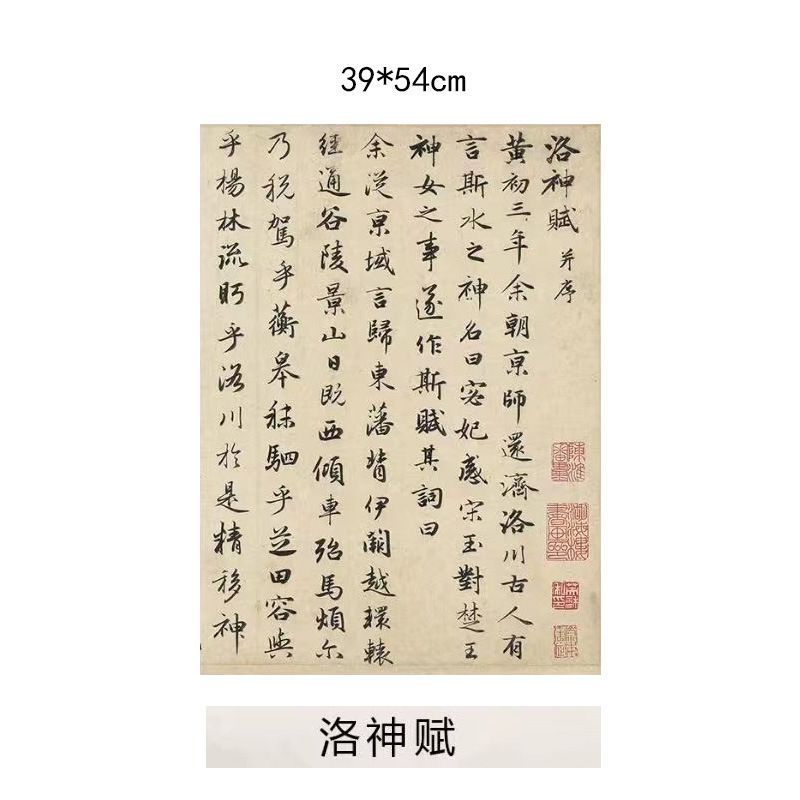 39*54cm
洛神賦 并序
黃初三年余朝京師還濟洛川古人有
言斯水之神名曰宓妃感宋玉對楚王
神女之事遂作斯賦其詞曰
余從京域言歸東藩背伊闕越轘轅
經通谷陵景山日既西傾車殆馬煩尔
乃税駕乎蘅皋秣駟乎芝田容與
乎楊林流眄乎洛川於是精移神
洛神赋